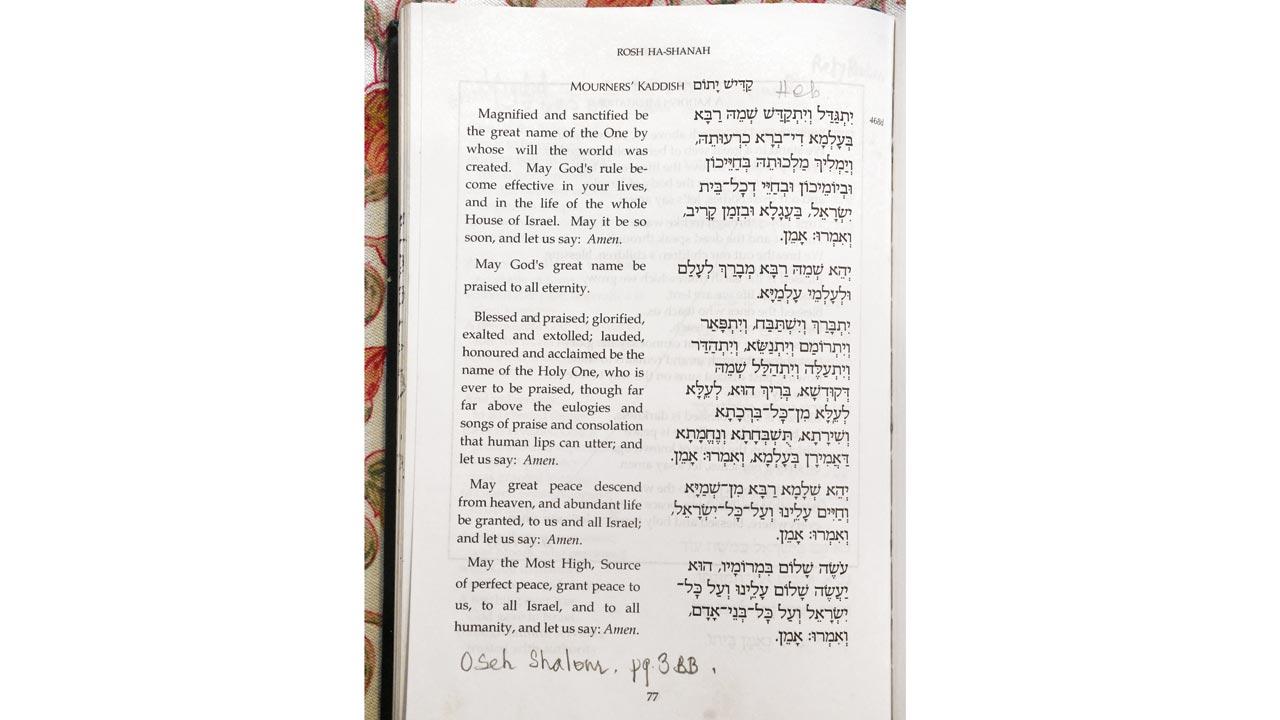 ROSH HA-SHANAH
MOURNERS' KADDISH קַדִּישׁ יָתוֹם Heb.
Magnified and sanctified be
the great name of the One by
whose will the world was
created. May God's rule be-
come effective in your lives,
and in the life of the whole
House of Israel. May it be so
soon, and let us say: Amen.
May God's great name be
praised to all eternity.
Blessed and praised; glorified,
exalted and extolled; lauded,
honoured and acclaimed be the
name of the Holy One, who is
ever to be praised, though far
far above the eulogies and
songs of praise and consolation
that human lips can utter; and
let us say: Amen.
May great peace descend
from heaven, and abundant life
be granted, to us and all Israel;
and let us say: Amen.
May the Most High, Source
of perfect peace, grant peace to
us, to all Israel, and to all
humanity, and let us say: Amen.
יִתְגַּדַּל וְיִתְקַדַּשׁ שְׁמֵהּ רַבָּא
בְּעָלְמָא דִּי־בְרָא כִרְעוּתֵהּ,
וְיַמְלִיךְ מַלְכוּתֵהּ בְּחַיֵּיכוֹן
וּבְיוֹמֵיכוֹן וּבְחַיֵּי דְכָל־בֵּית
יִשְׂרָאֵל, בַּעֲגָלָא וּבִזְמַן קָרִיב,
וְאִמְרוּ: אָמֵן.
יְהֵא שְׁמֵהּ רַבָּא מְבָרַךְ לְעָלַם
וּלְעָלְמֵי עָלְמַיָּא.
יִתְבָּרַךְ וְיִשְׁתַּבַּח, וְיִתְפָּאַר
וְיִתְרוֹמַם וְיִתְנַשֵּׂא, וְיִתְהַדַּר
וְיִתְעַלֶּה וְיִתְהַלַּל שְׁמֵהּ
דְּקוּדְשָׁא, בְּרִיךְ הוּא, לְעֵלָּא
לְעֵלָּא מִן־כָּל־בִּרְכָתָא
וְשִׁירָתָא, תֻּשְׁבְּחָתָא וְנֶחֱמָתָא
דַּאֲמִירָן בְּעָלְמָא, וְאִמְרוּ: אָמֵן.
יְהֵא שְׁלָמָא רַבָּא מִן־שְׁמַיָּא
וְחַיִּים עָלֵינוּ וְעַל־כָּל־יִשְׂרָאֵל,
וְאִמְרוּ: אָמֵן.
עֹשֶׂה שָׁלוֹם בִּמְרוֹמָיו, הוּא
יַעֲשֶׂה שָׁלוֹם עָלֵינוּ וְעַל כָּל־
יִשְׂרָאֵל וְעַל כָּל־בְּנֵי־אָדָם,
וְאִמְרוּ: אָמֵן.
468d
Oseh Shalom. pg.3BB.
77